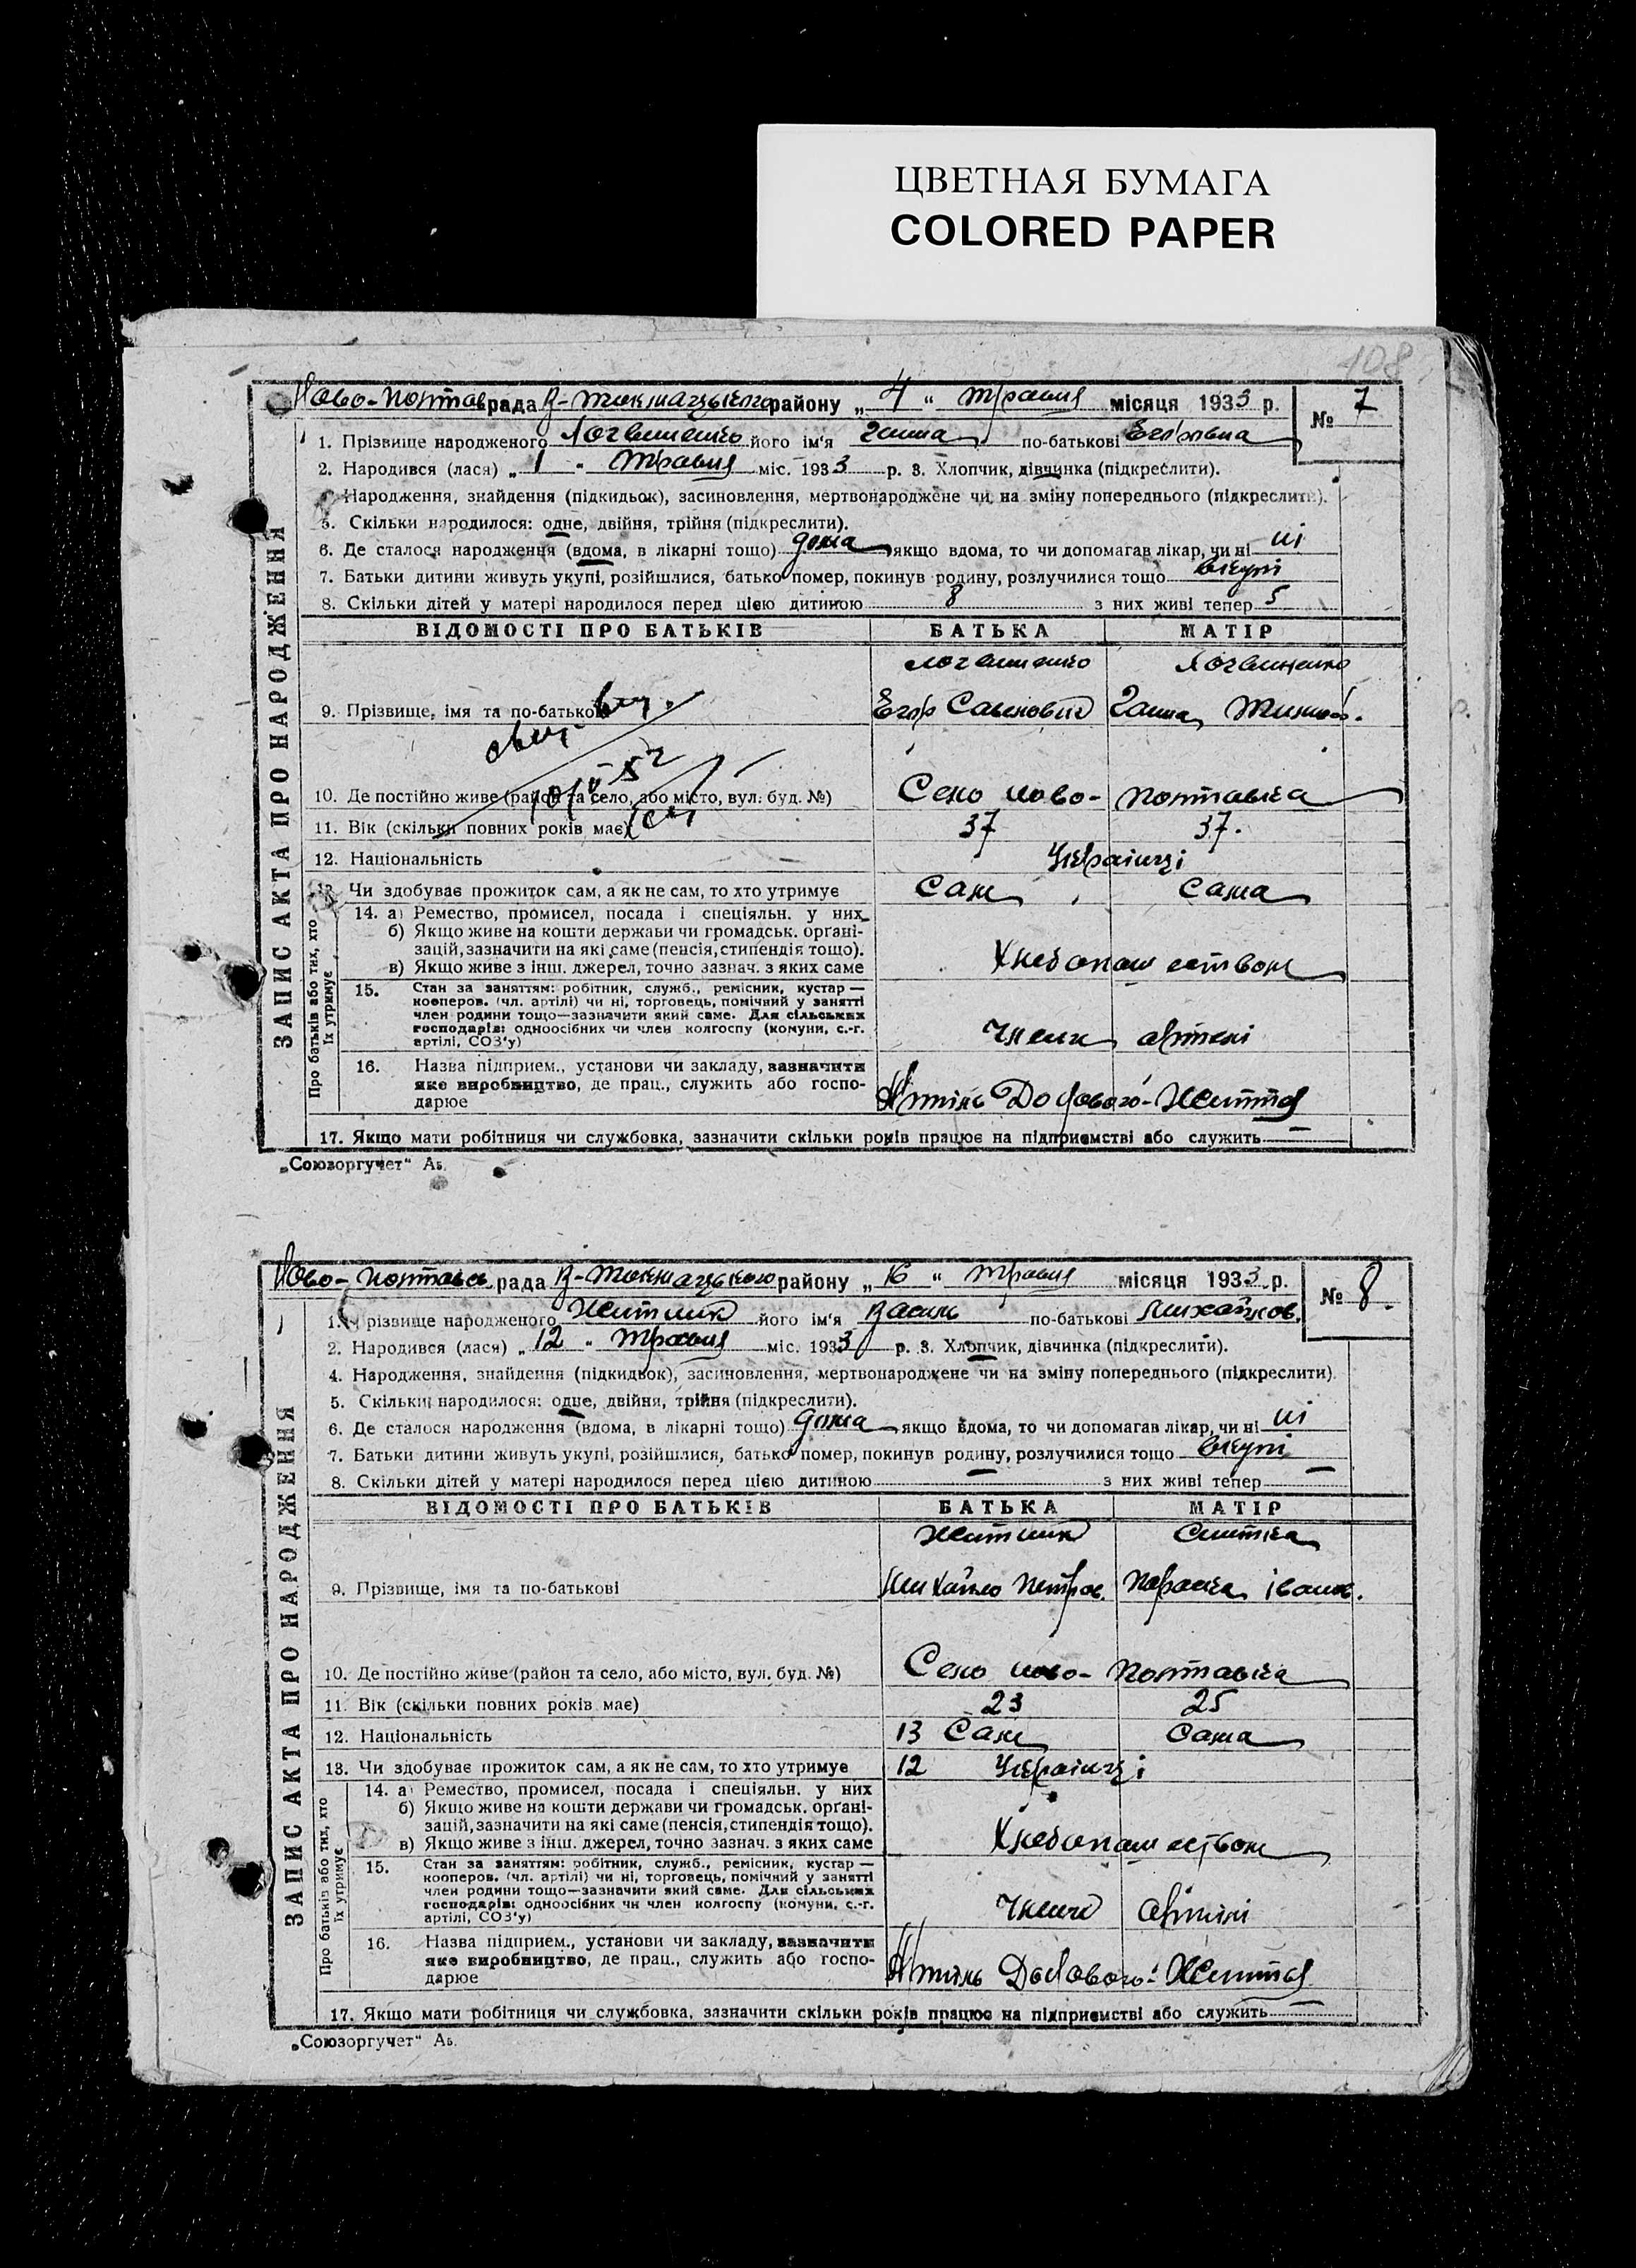 ЦВЕТНАЯ БУМАГА
COLORED PAPER
108
ЗАПИС АКТА ПРО НАРОДЖЕННЯ
Ново-Полтавс рада В-Токмацького району „ 4 “ Травня місяця 1933 р. № 7
1. Прізвище народженого Логвиненко його ім'я Ганна по-батькові Егорівна
2. Народився (лася) „ 1 “ Травня міс. 1933 р. 3. Хлопчик, дівчинка (підкреслити).
Народження, знайдення (підкидьок), засиновлення, мертвонароджене чи на зміну попереднього (підкреслити).
5. Скільки народилося: одне, двійня, трійня (підкреслити).
6. Де сталося народження (вдома, в лікарні тощо) дома якщо вдома, то чи допомагав лікар, чи ні ні
7. Батьки дитини живуть укупі, розійшлися, батько помер, покинув родину, розлучилися тощо вкупі
8. Скільки дітей у матері народилося перед цією дитиною 8 з них живі тепер 5
ВІДОМОСТІ ПРО БАТЬКІВ БАТЬКА МАТІР
Логвиненко Логвиненко
9. Прізвище, імя та по-батькові Егор Савенович Ганна
10. Де постійно живе (район та село, або місто, вул. буд. №) Село Ново-Полтавка
11. Вік (скільки повних років має) 37 37.
12. Національність Українці
13. Чи здобуває прожиток сам, а як не сам, то хто утримує Сам Сама
Про батьків або тих, хто їх утримує
14. а) Ремество, промисел, посада і спеціяльн. у них
б) Якщо живе на кошти держави чи громадськ. органі-
зацій, зазначити на які саме (пенсія, стипендія тощо).
в) Якщо живе з інш. джерел, точно зазнач. з яких саме Хлебопашеством
15. Стан за заняттям: робітник, служб., ремісник, кустар —
кооперов. (чл. артілі) чи ні, торговець, помічний у занятті
член родини тощо—зазначити який саме. Для сільських
господарів: одноосібних чи член колгоспу (комуни, с.-г.
артілі, СОЗ'у) Члени артелі
16. Назва підприєм., установи чи закладу, зазначити
яке виробництво, де прац., служить або госпо-
дарюе Артіль Дослового-Життя
17. Якщо мати робітниця чи службовка, зазначити скільки років працює на підприємстві або служить —
„Союзоргучет“ Аб.
ЗАПИС АКТА ПРО НАРОДЖЕННЯ
Ново-Полтавс рада В-Токмацького району „ 16 “ Травня місяця 1933 р. № 8.
1. Прізвище народженого Житник його ім'я Василь по-батькові Михайлов.
2. Народився (лася) „ 12 “ Травня міс. 1933 р. 3. Хлопчик, дівчинка (підкреслити).
4. Народження, знайдення (підкидьок), засиновлення, мертвонароджене чи на зміну попереднього (підкреслити).
5. Скільки народилося: одне, двійня, трійня (підкреслити).
6. Де сталося народження (вдома, в лікарні тощо) дома якщо вдома, то чи допомагав лікар, чи ні ні
7. Батьки дитини живуть укупі, розійшлися, батько помер, покинув родину, розлучилися тощо вкупі
8. Скільки дітей у матері народилося перед цією дитиною — з них живі тепер —
ВІДОМОСТІ ПРО БАТЬКІВ БАТЬКА МАТІР
Житник
9. Прізвище, імя та по-батькові Михайло Петров. Параска Іванов.
10. Де постійно живе (район та село, або місто, вул. буд. №) Село Ново-Полтавка
11. Вік (скільки повних років має) 23 25
12. Національність 13 Сам Сама
13. Чи здобуває прожиток сам, а як не сам, то хто утримує 12 Українці
Про батьків або тих, хто їх утримує
14. а) Ремество, промисел, посада і спеціяльн. у них
б) Якщо живе на кошти держави чи громадськ. органі-
зацій, зазначити на які саме (пенсія, стипендія тощо).
в) Якщо живе з інш. джерел, точно зазнач. з яких саме Хлебопашеством
15. Стан за заняттям: робітник, служб., ремісник, кустар —
кооперов. (чл. артілі) чи ні, торговець, помічний у занятті
член родини тощо—зазначити який саме. Для сільських
господарів: одноосібних чи член колгоспу (комуни, с.-г.
артілі, СОЗ'у) Члени Артілі
16. Назва підприєм., установи чи закладу, зазначити
яке виробництво, де прац., служить або госпо-
дарюе Артіль Дослового-Життя
17. Якщо мати робітниця чи службовка, зазначити скільки років працює на підприємстві або служить —
„Союзоргучет“ Аб.